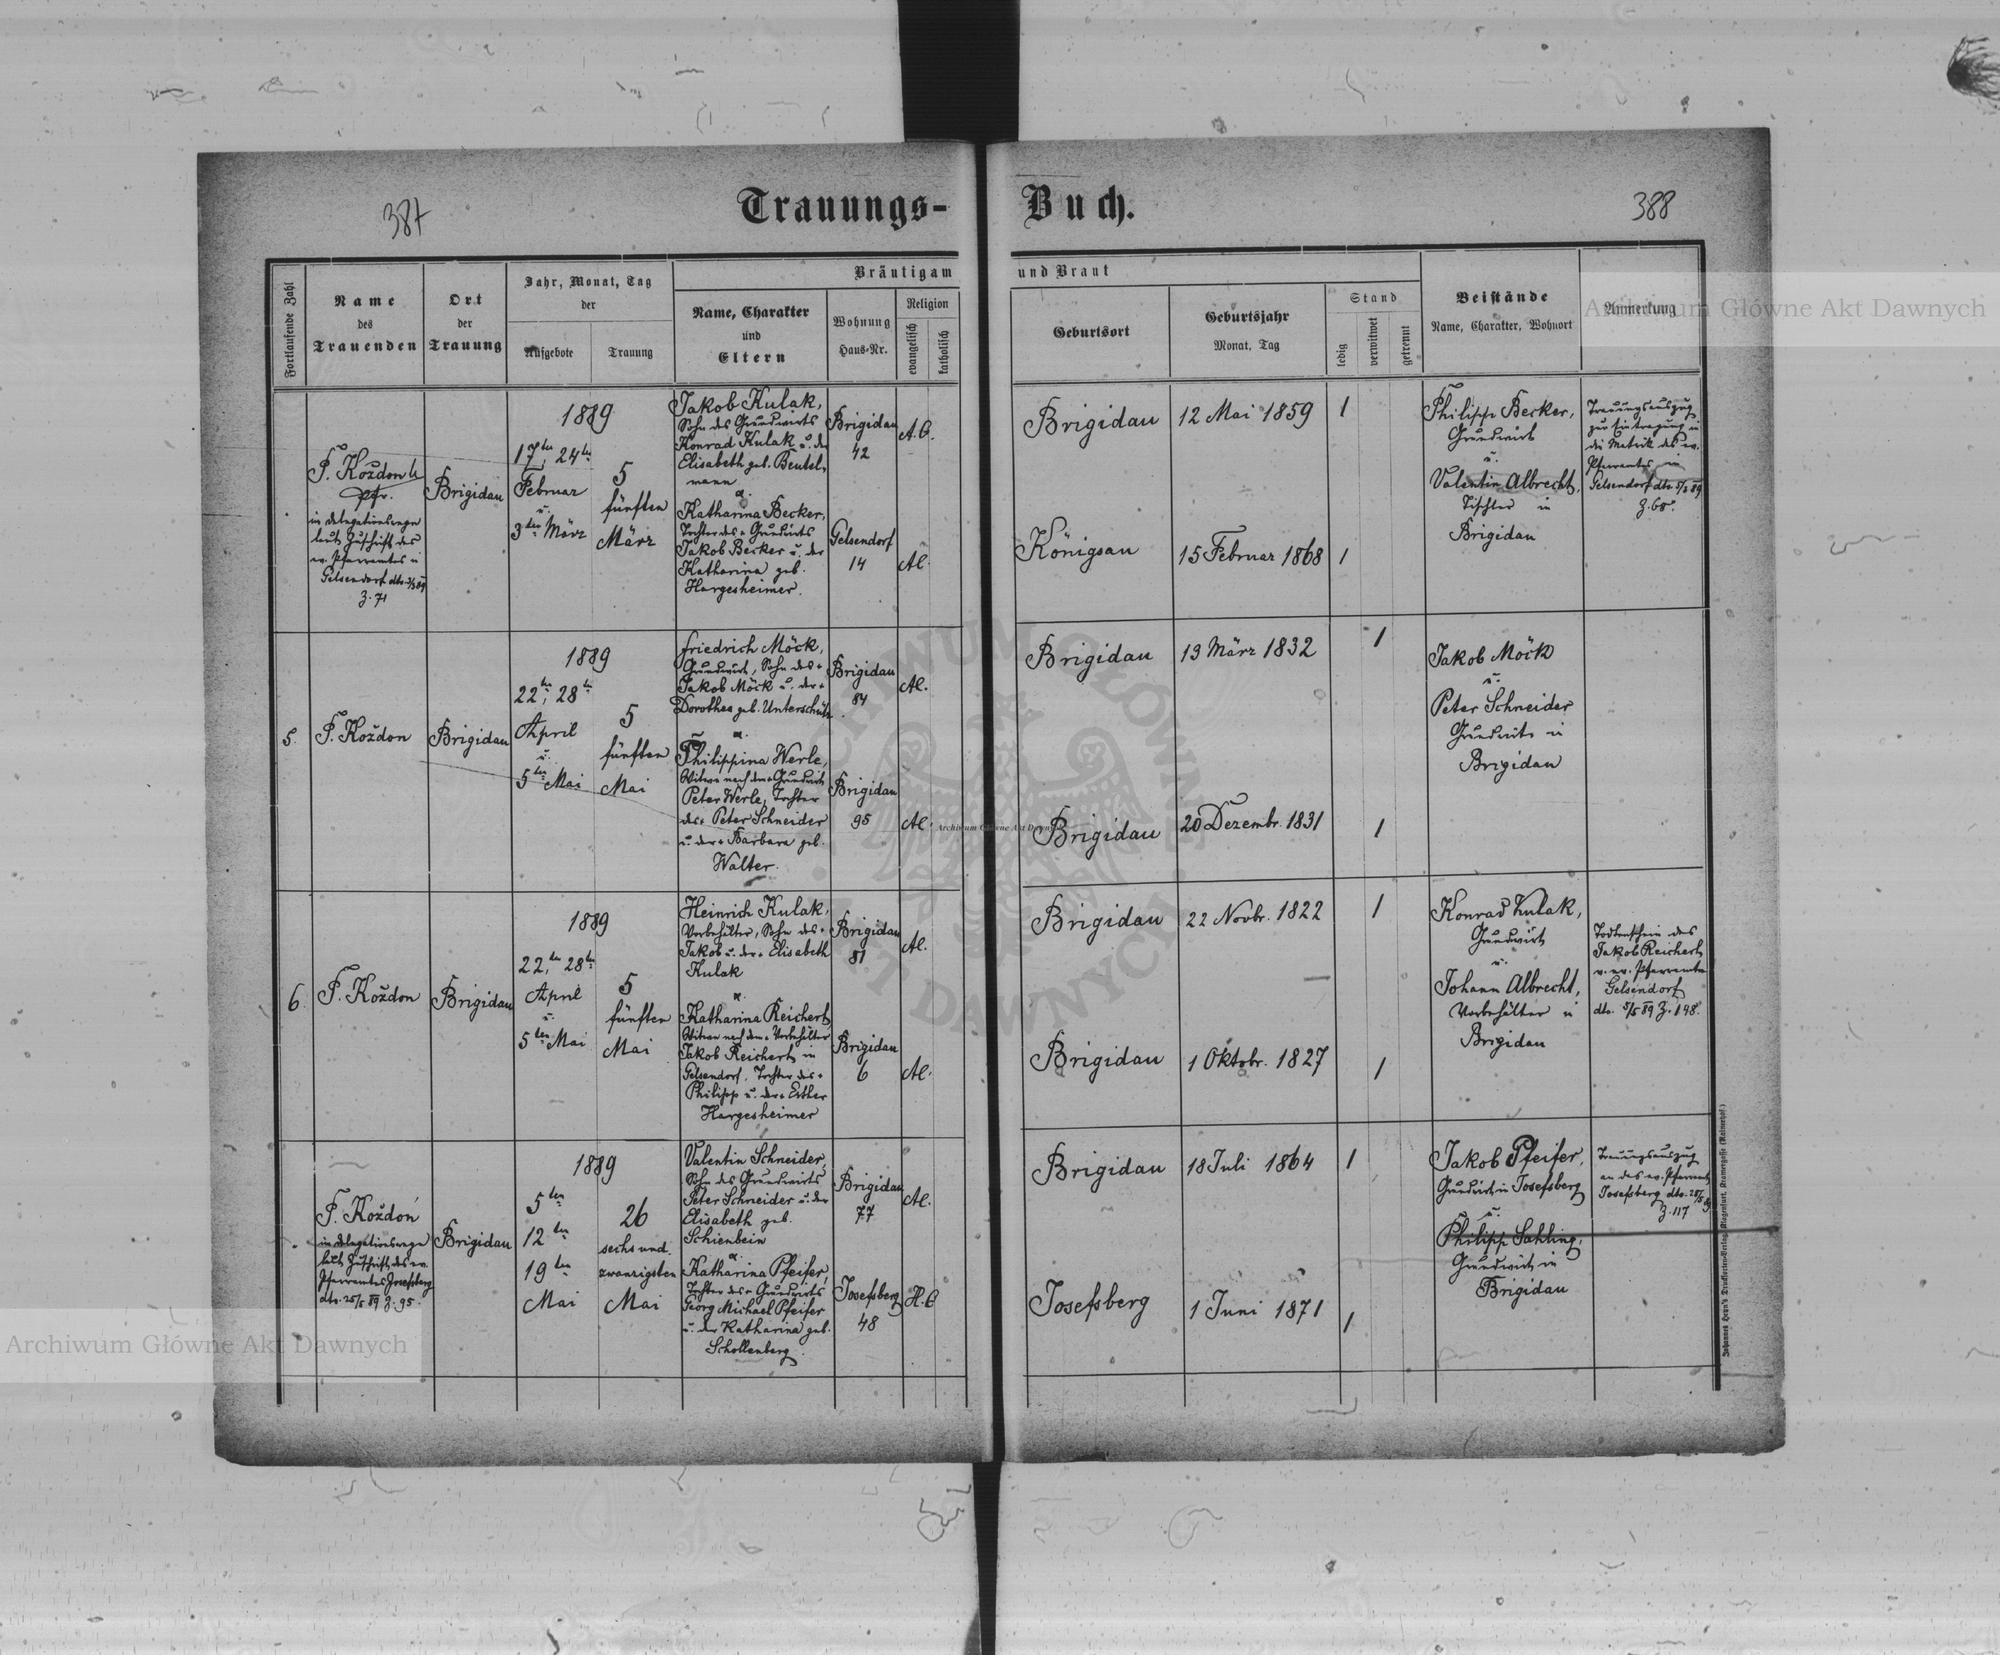 387
Trauungs-
Buch.
388
Fortlaufende Zahl
Name
des
Trauenden
Ort
der
Trauung
Jahr, Monat, Tag
der
Aufgebote
Trauung
Bräutigam
und Braut
Name, Charakter
und
Eltern
Wohnung
Haus-Nr.
Religion
evangelisch
katholisch
Geburtsort
Geburtsjahr
Monat, Tag
Stand
ledig
verwitwet
getrennt
Beistände
Name, Charakter, Wohnort
Anmerkung
F. Koždon
Pfr.
in delegationswege
laut Zuschrift des
ev. Pfarramtes in
Gelsendorf
Z. 71
Brigidau
1889
17ten, 24ten
Februar
u.
3ten März
5
fünften
März
Jakob Kulak,
Sohn des Grundwirts
Konrad Kulak u. der
Elisabeth geb. Beutel-
mann
Brigidau
42
A.C.
Katharina Becker,
Tochter des + Grundwirts
Jakob Becker u. der
Katharina geb.
Hargesheimer.
Gelsendorf
14
AC.
Brigidau
12 Mai 1859
1
Königsau
15 Februar 1868
1
Philipp Becker,
Grundwirt
u.
Valentin Albrecht,
Tischler in
Brigidau
Trauungsauszug
zur Eintragung in
die Matrik des ev.
Pfarramtes in
Gelsendorf dto. 5/3 89
Z. 68.
5.
F. Koždon
Brigidau
1889
22ten, 28ten
April
u.
5ten Mai
5
fünften
Mai
Friedrich Möck,
Grundwirt, Sohn des +
Jakob Möck u. der +
Dorothea geb. Unterschütz
Brigidau
84
AC.
Philippina Werle,
Witwe nach dem + Grundwirt
Peter Werle, Tochter
des + Peter Schneider
u. der + Barbara geb.
Walter.
Brigidau
95
AC.
Brigidau
13 März 1832
1
Brigidau
20 Dezembr. 1831
1
Jakob Möck
u.
Peter Schneider
Grundwirte in
Brigidau
6.
F. Koždon
Brigidau
1889
22ten, 28ten
April
u.
5ten Mai
5
fünften
Mai
Heinrich Kulak,
Vorbehälter, Sohn des +
Jakob u. der + Elisabeth
Kulak
Brigidau
81
AC.
Katharina Reichert
Witwe nach dem + Vorbehälter
Jakob Reichert in
Gelsendorf, Tochter des +
Philipp u. der + Esther
Hargesheimer
Brigidau
6
AC.
Brigidau
22 Novbr. 1822
1
Brigidau
1 Oktobr. 1827
1
Konrad Kulak,
Grundwirt
u.
Johann Albrecht,
Vorbehälter in
Brigidau
Todtenschein des
Jakob Reichert
v. ev. Pfarramte
Gelsendorf
dto. 5/5 89 Z. 148.
F. Koždon
in delegationswege
laut Zuschrift des ev.
Pfarramtes Josefsberg
dto. 25/5 89 Z. 95.
Brigidau
1889
5ten
12ten
19ten
Mai
26
sechs und
zwanzigsten
Mai
Valentin Schneider,
Sohn des Grundwirts
Peter Schneider u. der
Elisabeth geb.
Schienbein
Brigidau
77
AC.
Katharina Pfeifer,
Tochter des + Grundwirts
Georg Michael Pfeifer
u. der Katharina geb.
Schollenberg.
Josefsberg
48
H.C
Brigidau
18 Juli 1864
1
Josefsberg
1 Juni 1871
1
Jakob Pfeifer,
Grundwirt in Josefsberg
u.
Philipp Sahling,
Grundwirt in
Brigidau
Trauungsauszug
an das ev. Pfarramt
Josefsberg dto. 25/5 89
Z. 117
Archiwum Główne Akt Dawnych
Archiwum Główne Akt Dawnych
Archiwum Główne Akt Dawnych
ARCHIWUM GŁÓWNE
AKT DAWNYCH